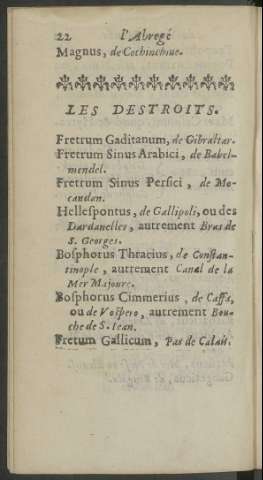 22 l'Abregé
Magnus, de Cochinchine.
LES DESTROITS.
Fretrum Gaditanum, de Gibraltar.
Fretrum Sinus Arabici, de Babel-
mendel.
Fretrum Sinus Persici, de Mo-
candan.
Hellespontus, de Gallipoli, ou des
Dardanelles, autrement Bras de
S. Georges.
Bosphorus Thracius, de Constan-
tinople, autrement Canal de la
Mer Majoure.
Bosphorus Cimmerius, de Caffa,
ou de Vospero, autrement Bou-
che de S. Iean.
Fretum Gallicum, Pas de Calais.